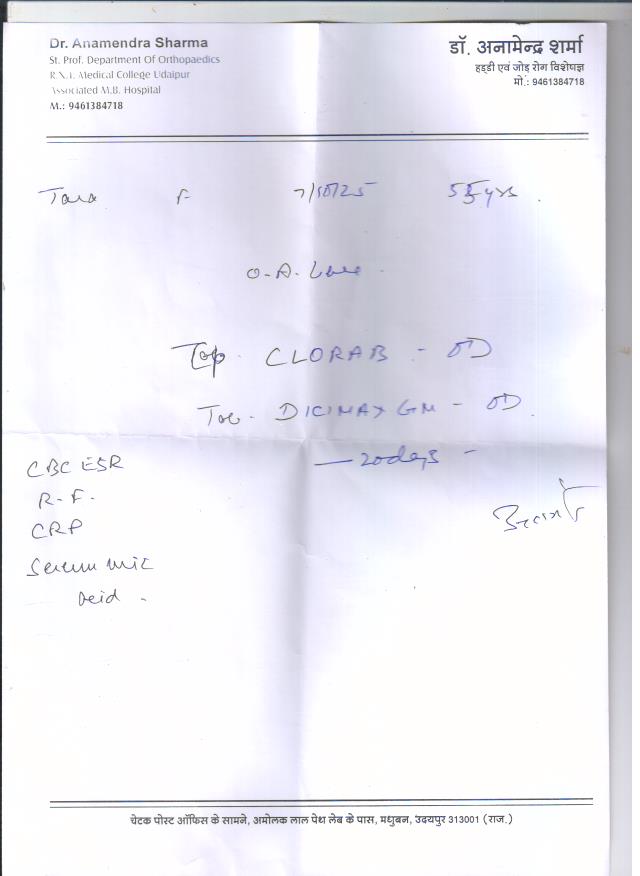 Dr. Anamendra Sharma
St. Prof. Department Of Orthopaedics
R.N.T. Medical College Udaipur
Associated M.B. Hospital
M.: 9461384718
डॉ. अनामेन्द्र शर्मा
हड्डी एवं जोड़ रोग विशेषज्ञ
मो.: 9461384718
Tara F 7/10/25 55 yrs.
O.A.
CLORAB - OD
DICIMAX GM - OD
20 days
CBC ESR
R.F.
CRP
Serum uric
Acid
चेटक पोस्ट ऑफिस के सामने, अमोलक लाल पेथ लेब के पास, मधुबन, उदयपुर 313001 (राज.)